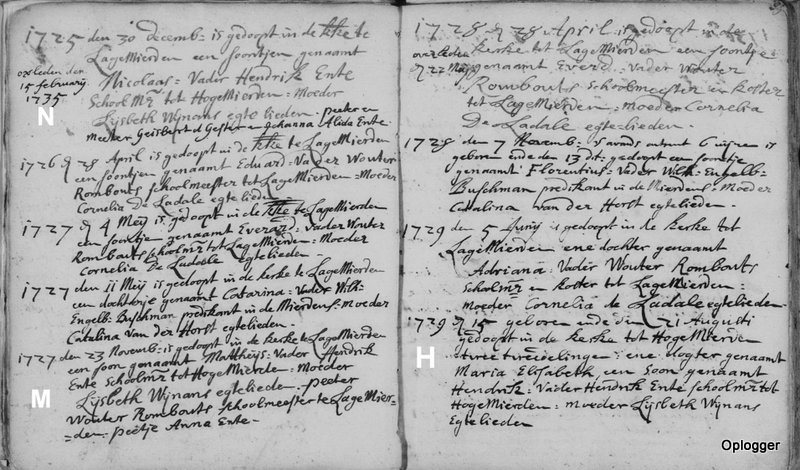 1725 den 30 decemb= is gedoopt in de kerke te
LageMierden een soontjen genaamt
Nicolaas= Vader Hendrik Ente
School Mr tot HogeMierden= Moeder
Lijsbeth Wijnans egtelieden. peeter en
meeter Geisbert de Gester en Johanna Alida Ente
overleden den
15 februarij
1735
N
1726 d 28 April is gedoopt in de kerke te LageMierden
een soontjen genaamt Eduard= Vader Wouter
Rombouts schoolmeester tot LageMierden= Moeder
Cornelia de Ladale egtelieden
1727 d 4 Meij is gedoopt in de kerke te LageMierden
een soontjen genaamt Everard= Vader Wouter
Rombouts schoolmr tot LageMierden= Moeder
Cornelia De Ladale egtelieden
1727 den 11 Meij is gedoopt in de kerke te LageMierden
een dochtertje genaamt Catarina= Vader Wilh=
Engelb= Buschman predikant in de Mierdens= Moeder
Catalina Van der Horst egtelieden
1727 den 23 Novemb= is gedoopt in de kerke te LageMierden
een soon genaamt Mattheijs= Vader Hendrik
Ente Schoolmr tot HogeMierden= Moeder
Lijsbeth Wijnans egtelieden. peeter
Wouter Rombouts schoolmeester te LageMier=
=den. peetje Anna Ente
M
1728 d 28 April is gedoopt in de
kerke tot LageMierden een soontje
genaamt Everd= Vader Wouter
Rombouts schoolmeester en koster
tot LageMierden= moeder Cornelia
De Ladale egtelieden
overleden
1728 den 7 Novemb= 's avonds omtrent 6 uijren is
geboren ende den 13 dito gedoopt een soontje
genaamt Florentius= Vader Wilh= Engelb=
Buschman predikant in de Mierdens= Moeder
Catalina van der Horst egtelieden
1729 den 5 Junij is gedoopt in de kerke tot
LageMierden ene dochter genaamt
Adriana= Vader Wouter Rombouts
schoolmr en koster tot LageMierden=
moeder Cornelia de Ladale egtelieden
1729 d 15 geboren ende den 21 Augusti
gedoopt in de kerke tot HogeMierden
twee tweedelingen: ene dogter genaamt
Maria Elisabeth en een Soon genaamt
Hendrik= Vader Hendrik Ente schoolmr tot
HogeMierden= moeder Lijsbeth Wijnans
Egtelieden
H
Oplogger